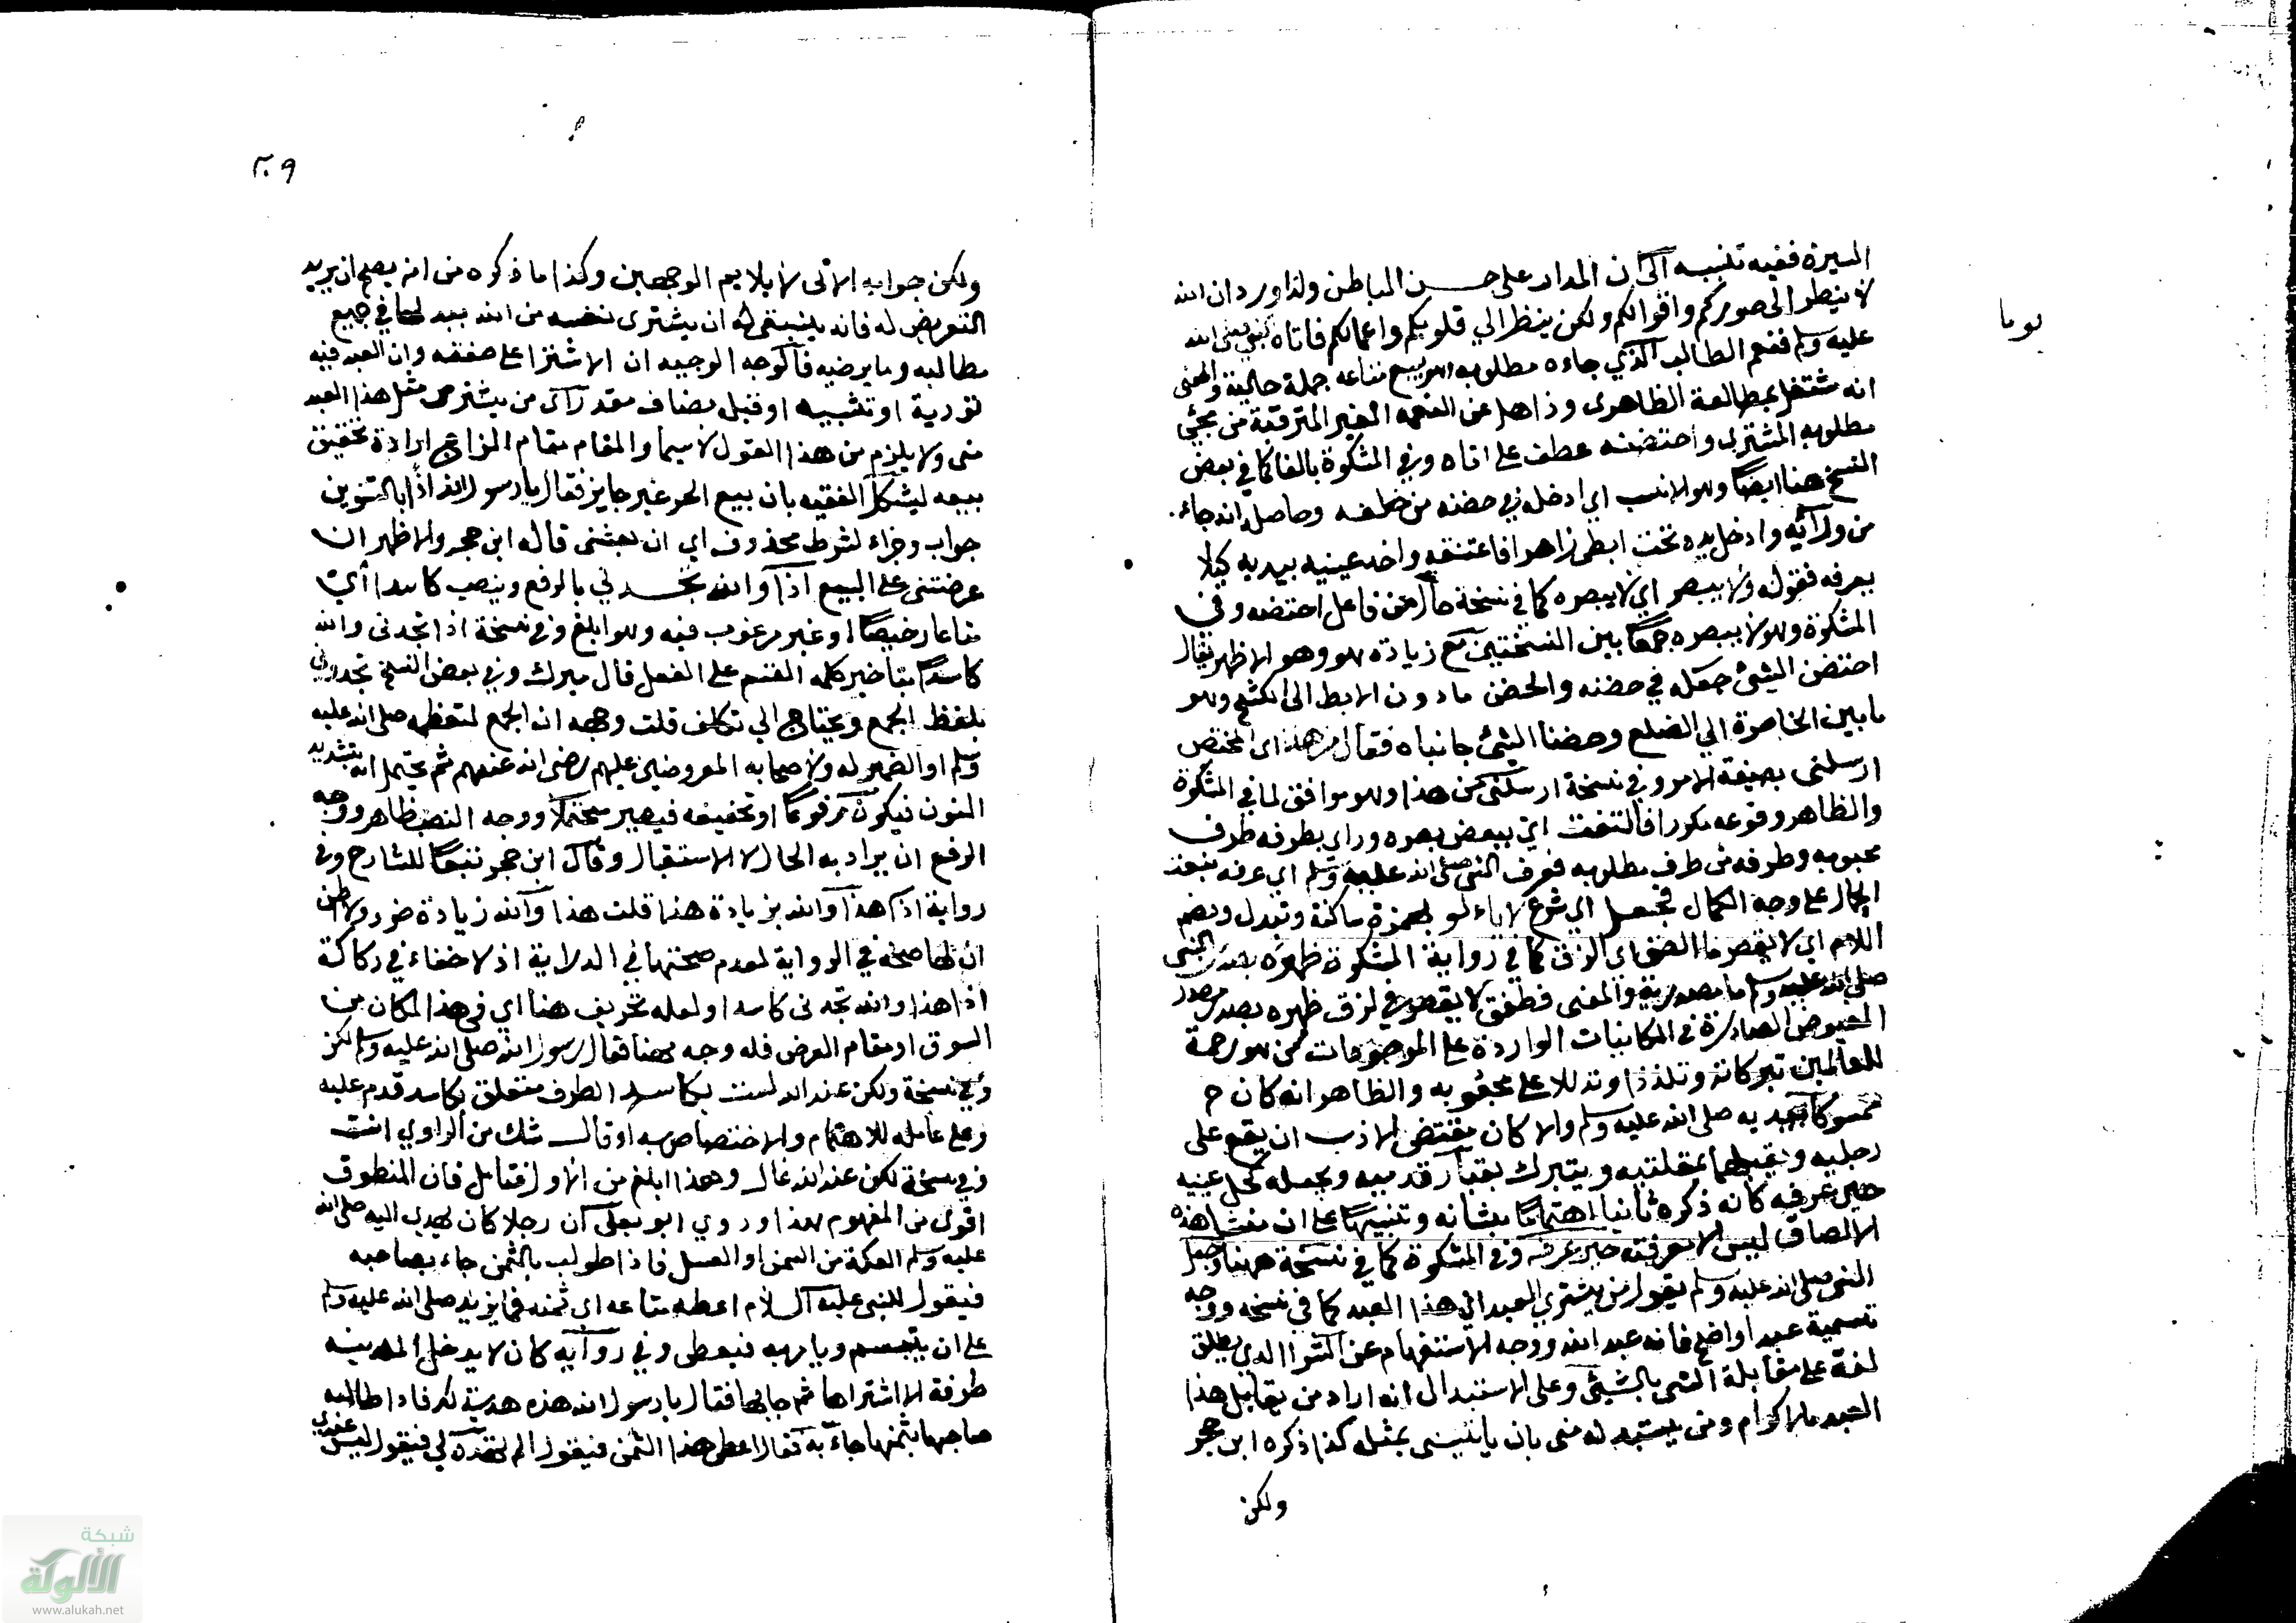 السيرة ففيه تنبيه الى ان المدار على حسن الباطن ولذا ورد ان الله
لا ينظر الى صوركم واقوالكم ولكن ينظر الي قلوبكم واعمالكم فاتاه النبي صلى الله
يوما
عليه وسلم فنعم الطالب الذي جاءه مطلوبه وهو يبيع متاعه جملة حالية والمعنى
انه مشتغل بمطالعة الظاهرى وذاهل عن النعمة الغير المترقبة من مجيئ
مطلوبه المشترى واحتضنه عطف على اتاه وفي المشكوة بالفا كما في بعض
النسخ هنا ايضا وهو الانسب اي ادخله في حضنه من خلفه وحاصله انه جاء
من ورائه وادخل يده تحت ابطى زاهر فاعتنقه واخذ عينيه بيديه كيلا
يعرفه فقوله ولا يبصر اي لا يبصره كما في نسخة حال من فاعل احتضنه وفى
المشكوة وهو لا يبصره جمعا بين النسختين مع زيادة هو وهو الاظهر يقال
احتضن الشيئ جعله في حضنه والحضن ما دون الابط الى الكشح وهو
ما بين الخاصرة الي الضلع وحضنا الشيئ جانباه فقال من هذا اى المحتضن
ارسلنى بصيغة الامر وفي نسخة ارسلنى من هذا وهو موافق لما في المشكوة
والظاهر وقوعه مكررا فالتفت اي ببعض بصره وراى بطرفه طرف
محبوبه وطرفه من طرف مطلوبه فعرف النبي صلى الله عليه وسلم اي عرفه بنعت
الجمال على وجه الكمال فجعل اي شرع لا يالو بهمزة ساكنة وتبدل وبضم
اللام اي لا يقصر ما الصق اى الزق كما في رواية المشكوة ظهره بصدر النبى
صلى الله عليه وسلم ما مصدرية والمعنى فطفق لا يقصر في لزق ظهره بصدر مصدر
الفيوض الصادرة في الكاينات الواردة على الموجودات من هو رحمة
للعالمين تبركا به وتلذذا وتدللا على محبوبه والظاهر انه كان ح
ممسوكا بيديه صلى الله عليه وسلم والا كان مقتضى الادب ان يقع على
رجليه ويقبلهما بمقلتيه ويتبرك بغبار قدميه ويجعله كحل عينيه
حين عرفه كانه ذكره ثانيا اهتماما بشانه وتنبيها على ان منشا هذه
الالصاق ليس الا معرفته حين عرفه وفي المشكوة كما في نسخة هنا وجعل
النبى صلى الله عليه وسلم يقول من يشترى العبد اي هذا العبد كما في نسخه ووجه
تسمية عبدا واضح فانه عبد الله ووجه الاستفهام عن الشرا الذي يطلق
لغة على مقابلة الشى بالشيئ وعلى الاستبدال انه اراد من يقابل هذا
العبد بالاكرام ومن يستبدله منى بان ياتينى بمثله كذا ذكره ابن حجر
ولكن
٢٠٩
ولكن جوابه الاتى لا يلايم الوجهين وكذا ما ذكره من انه يصح ان يريد
التعريض له فانه ينبغي له ان يشترى نفسه من الله ببذلها في جميع
مطالبه وما يرضيه فالوجه الوجيه ان الاشترا على حقيقته وان العبد فيه
تورية او تشبيه او قبله مضاف مقدر اى من يشترى مثل هذا العبد
منى ولا يلزم من هذا القول لا سيما والمقام مقام المزاح ارادة تحقيق
بيعه ليشكل الفقيه بان بيع الحر غير جايز فقال يا رسول الله اذا بالتنوين
جواب وجزاء لشرط محذوف اي ان بعتنى قاله ابن حجر والاظهر ان
عرضتنى على البيع اذا والله تجدني بالرفع وينصب كاسدا اي
متاعا رخيصا او غير مرغوب فيه وهو ابلغ وفي نسخة اذا تجدنى والله
كاسدا بتاخير كلمة القسم على الفعل قال ميرك وفي بعض النسخ تجدونى
بلفظ الجمع ويحتاج الي تكلف قلت وجهه ان الجمع لتعظيمه صلى الله عليه
وسلم او الضمير له ولاصحابه المعروضين عليهم رضى الله عنهم ثم يحتمل انه بتشديد
النون فيكون مرفوعا او تخفيفه فيصير محتملا ووجه النصب ظاهر ووجه
الرفع ان يراد به الحال لا الاستقبال وقال ابن حجر تبعا للشارح وفي
رواية اذا هذا والله بزيادة هذا قلت هذا والله زيادة ضرر ولا اظن
ان لها صحة في الرواية لعدم صحتها في الدلاية اذ لا خفاء في ركاكة
اذا هذا والله تجدنى كاسدا ولعله تحريف هنا اي في هذا المكان من
السوق او مقام العرض فله وجه هنا فقال رسول الله صلى الله عليه وسلم لكن
وفي نسخة ولكن عند الله لست بكاسد الظرف متعلق بكاسد قدم عليه
وعلى عامله للاهتمام والاختصاص به او قال شك من الراوي انت
وفي نسخة لكن عند الله غال وهذا ابلغ من الاول فتامل فان المنطوق
اقوى من المفهوم هذا وروي ابو يعلى ان رجلا كان يهدى اليه صلى الله
عليه وسلم العكة من السمن او العسل فاذا طولب بالثمن جاء بصاحبه
فيقول للنبى عليه السلام اعطه متاعه اى ثمنه فما يزيد صلى الله عليه وسلم
على ان يتبسم ويامر به فيعطى وفي رواية كان لا يدخل المدينة
طرفة الا اشتراها ثم جا بها فقال يا رسول الله هذه هدية لك فاذا طالبه
صاحبها بثمنها جاء به فقال اعط هذا الثمن فيقول الم تهده لي فيقول ليس عندي
شبكة
الألوكة
www.alukah.net